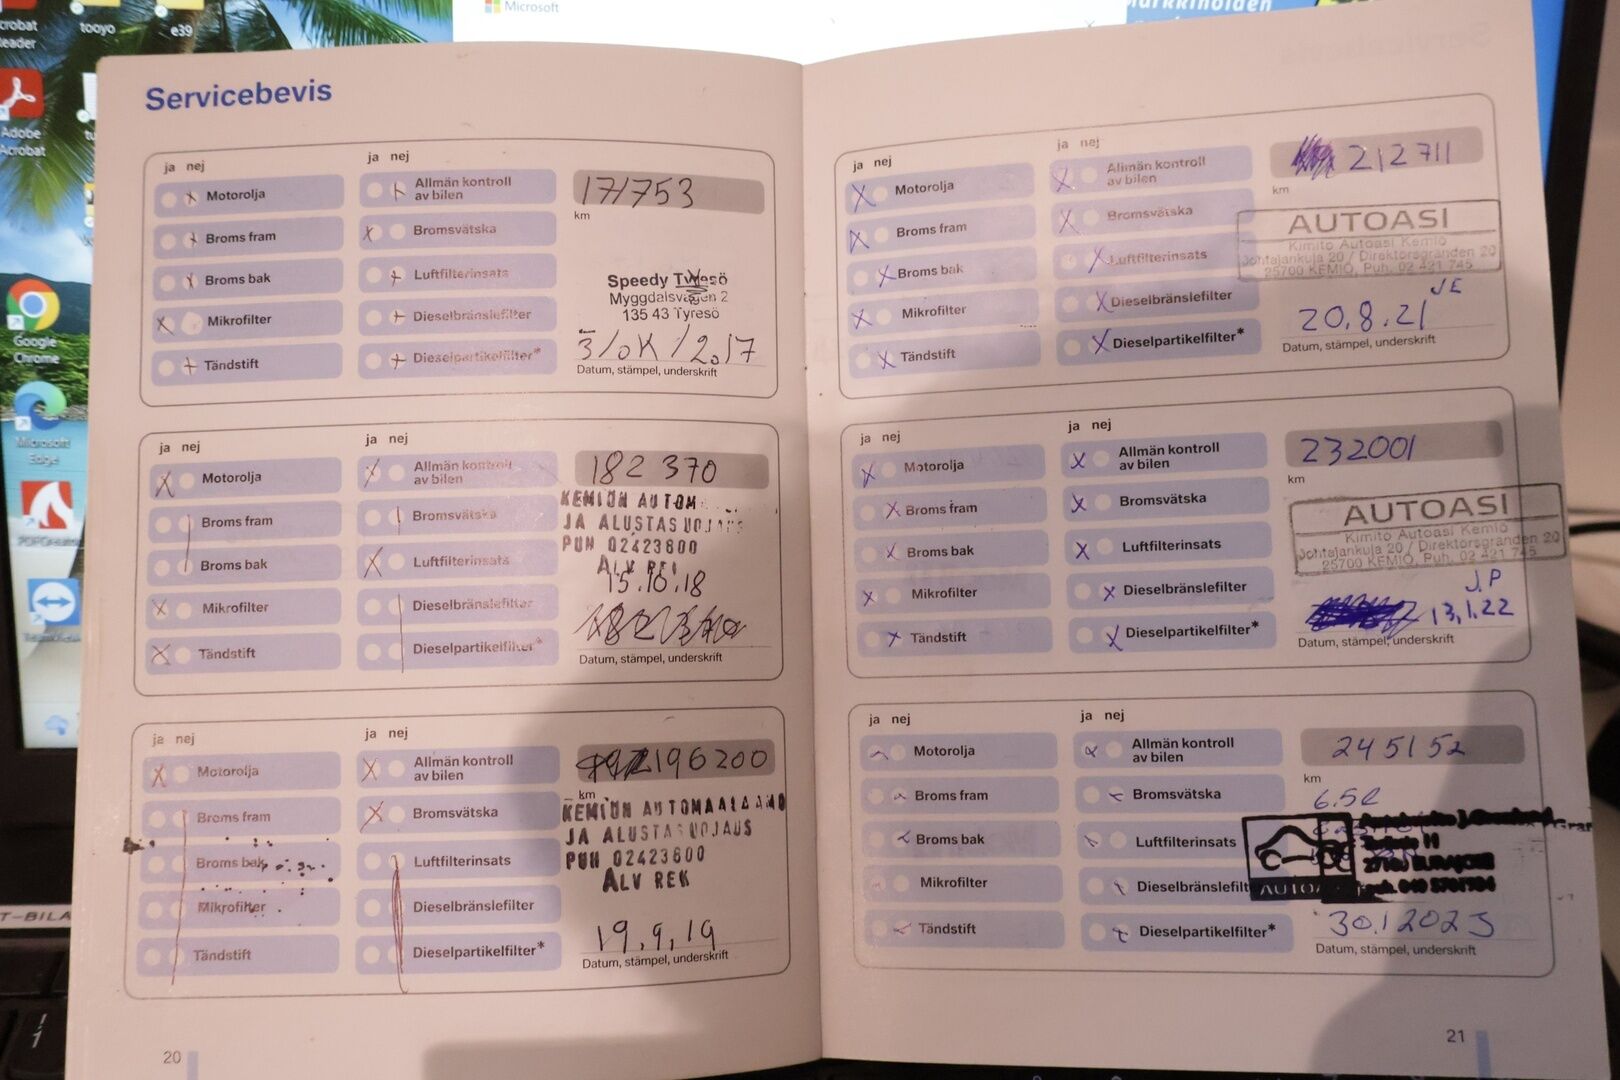 Microsoft
tooyo
e39
Adobe
Acrobat
Google
Chrome
Microsoft
Edge
Servicebevis
ja nej
Motorolja
Broms fram
Broms bak
Mikrofilter
Tändstift
ja nej
Allmän kontroll
av bilen
Bromsvätska
Luftfilterinsats
Dieselbränslefilter
Dieselpartikelfilter*
171753
km
Speedy Tyresö
Myggdalsvägen 2
135 43 Tyresö
3/OK/2017
Datum, stämpel, underskrift
ja nej
Motorolja
Broms fram
Broms bak
Mikrofilter
Tändstift
ja nej
Allmän kontroll
av bilen
Bromsvätska
Luftfilterinsats
Dieselbränslefilter
Dieselpartikelfilter*
182 370
KEMIÖN AUTOM
JA ALUSTASUOJAUS
PUH 02423600
ALV REK
15.10.18
Datum, stämpel, underskrift
ja nej
Motorolja
Broms fram
Broms bak
Mikrofilter
Tändstift
ja nej
Allmän kontroll
av bilen
Bromsvätska
Luftfilterinsats
Dieselbränslefilter
Dieselpartikelfilter*
196200
km
KEMIÖN AUTOMAALAAMO
JA ALUSTASUOJAUS
PUH 02423600
ALV REK
19.9.19
Datum, stämpel, underskrift
20
ja nej
Motorolja
Broms fram
Broms bak
Mikrofilter
Tändstift
ja nej
Allmän kontroll
av bilen
Bromsvätska
Luftfilterinsats
Dieselbränslefilter
Dieselpartikelfilter*
212711
km
AUTOASI
Kimito Autoasi Kemiö
Johtajankuja 20 / Direktörsgränden 20
25700 KEMIÖ, Puh. 02 421 745
JE
20.8.21
Datum, stämpel, underskrift
ja nej
Motorolja
Broms fram
Broms bak
Mikrofilter
Tändstift
ja nej
Allmän kontroll
av bilen
Bromsvätska
Luftfilterinsats
Dieselbränslefilter
Dieselpartikelfilter*
232001
km
AUTOASI
Kimito Autoasi Kemiö
Johtajankuja 20 / Direktörsgränden 20
25700 KEMIÖ, Puh. 02 421 745
J.P
13.1.22
Datum, stämpel, underskrift
ja nej
Motorolja
Broms fram
Broms bak
Mikrofilter
Tändstift
ja nej
Allmän kontroll
av bilen
Bromsvätska
Luftfilterinsats
Dieselbränslefilt
Dieselpartikelfilter*
245152
km
6.5l
30.1.2023
Datum, stämpel, underskrift
21